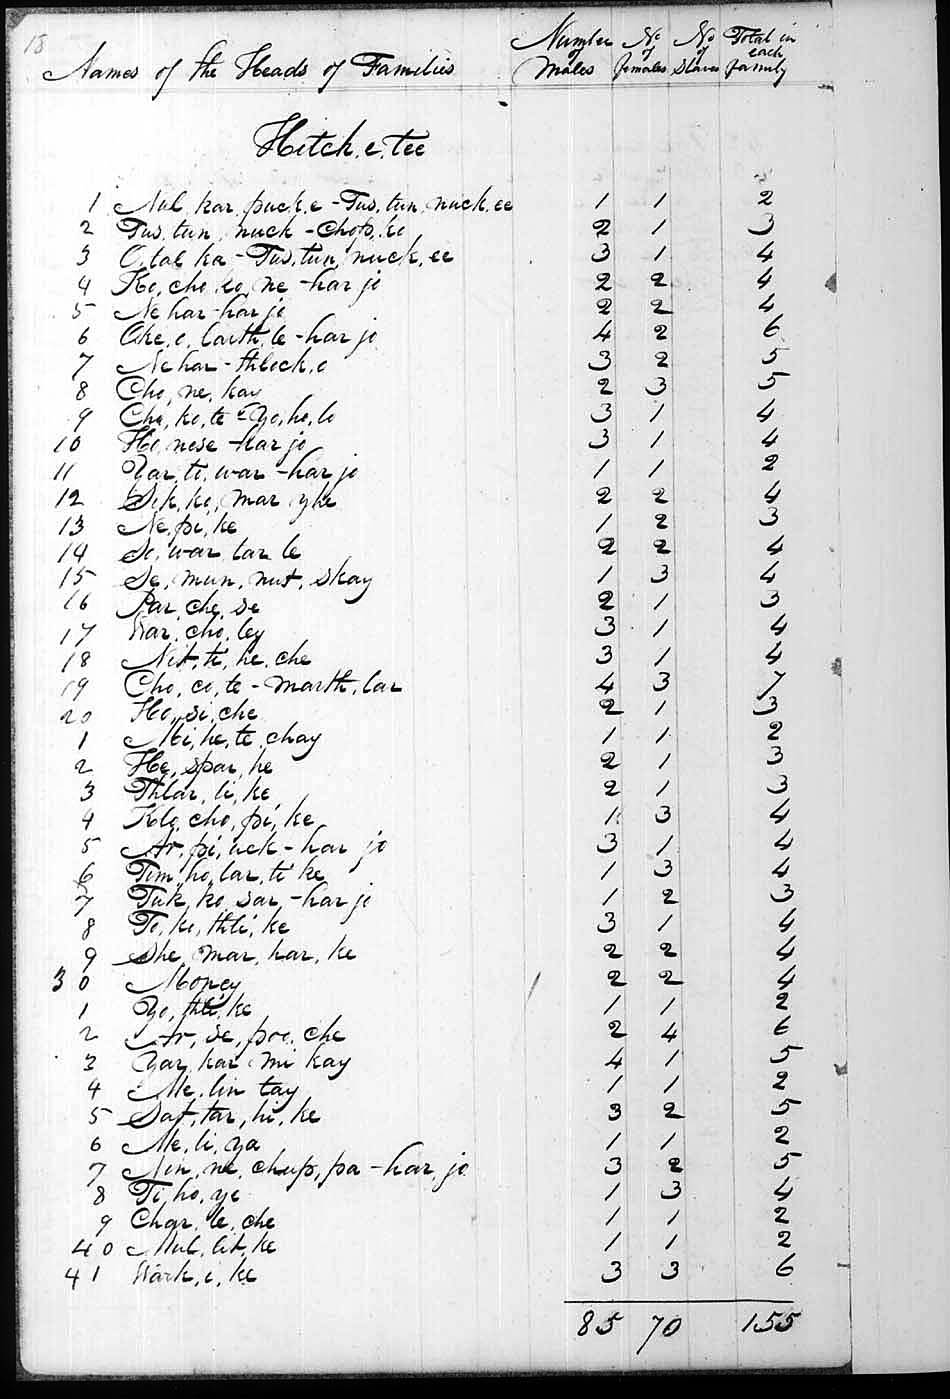 18
Names of the Heads of Families Number of Males No of females No of Slaves Total in each family
Hitch.e.tee
1 Nul.kar.puck.e - Tus.tun.nuck.ee 1 1 2
2 Tus.tun.nuck - Chop.ko 2 1 3
3 O.tal ka - Tus.tun nuck.ee 3 1 4
4 Ko.cho.lo.ne - har jo 2 2 4
5 Ne har - har jo 2 2 4
6 Oke.o.larth.le - har jo 4 2 6
7 Ne har - thlock.o 3 2 5
8 Cho.ne.kay 2 3 5
9 Cho.ko.te - Yo.ho.lo 3 1 4
10 Ho.nese - har jo 3 1 4
11 Yar.te.war - har jo 1 1 2
12 Sik.ke.mar 2 2 4
13 Ne.pi.ke 1 2 3
14 So.war lar le 2 2 4
15 Se.mun.nut.skay 1 3 4
16 Par.che.se 2 1 3
17 War.cho.ley 3 1 4
18 Nit.te.he.che 3 1 4
19 Cho.co.te - marth.lar 4 3 7
20 Ho.si.che 2 1 3
1 Mi.he.te.chay 1 1 2
2 He.spar.he 2 1 3
3 Thlar.li.ke 2 1 3
4 Klo.cho.pi.ke 1 3 4
5 Ar.pi.uck - har jo 3 1 4
6 Tim.ho.lar.ti ke 1 3 4
7 Tuk.ko.sar - har jo 1 2 3
8 To.ko.thli.ke 3 1 4
9 She.mar.har.ke 2 2 4
30 Money 2 2 4
1 Yo.thli.ke 1 1 2
2 Ar.se.poo.che 2 4 6
3 Yar.kar mi kay 4 1 5
4 Me.lin tay 1 1 2
5 Sat.tar.hi.ke 3 2 5
6 Me.li.ya 1 1 2
7 Nin.ne.chup.pa - har.jo 3 2 5
8 Ti.ho.ye 1 3 4
9 Char.le.che 1 1 2
40 Mul.lit.ke 1 1 2
41 Wark.i.ke 3 3 6
85 70 155